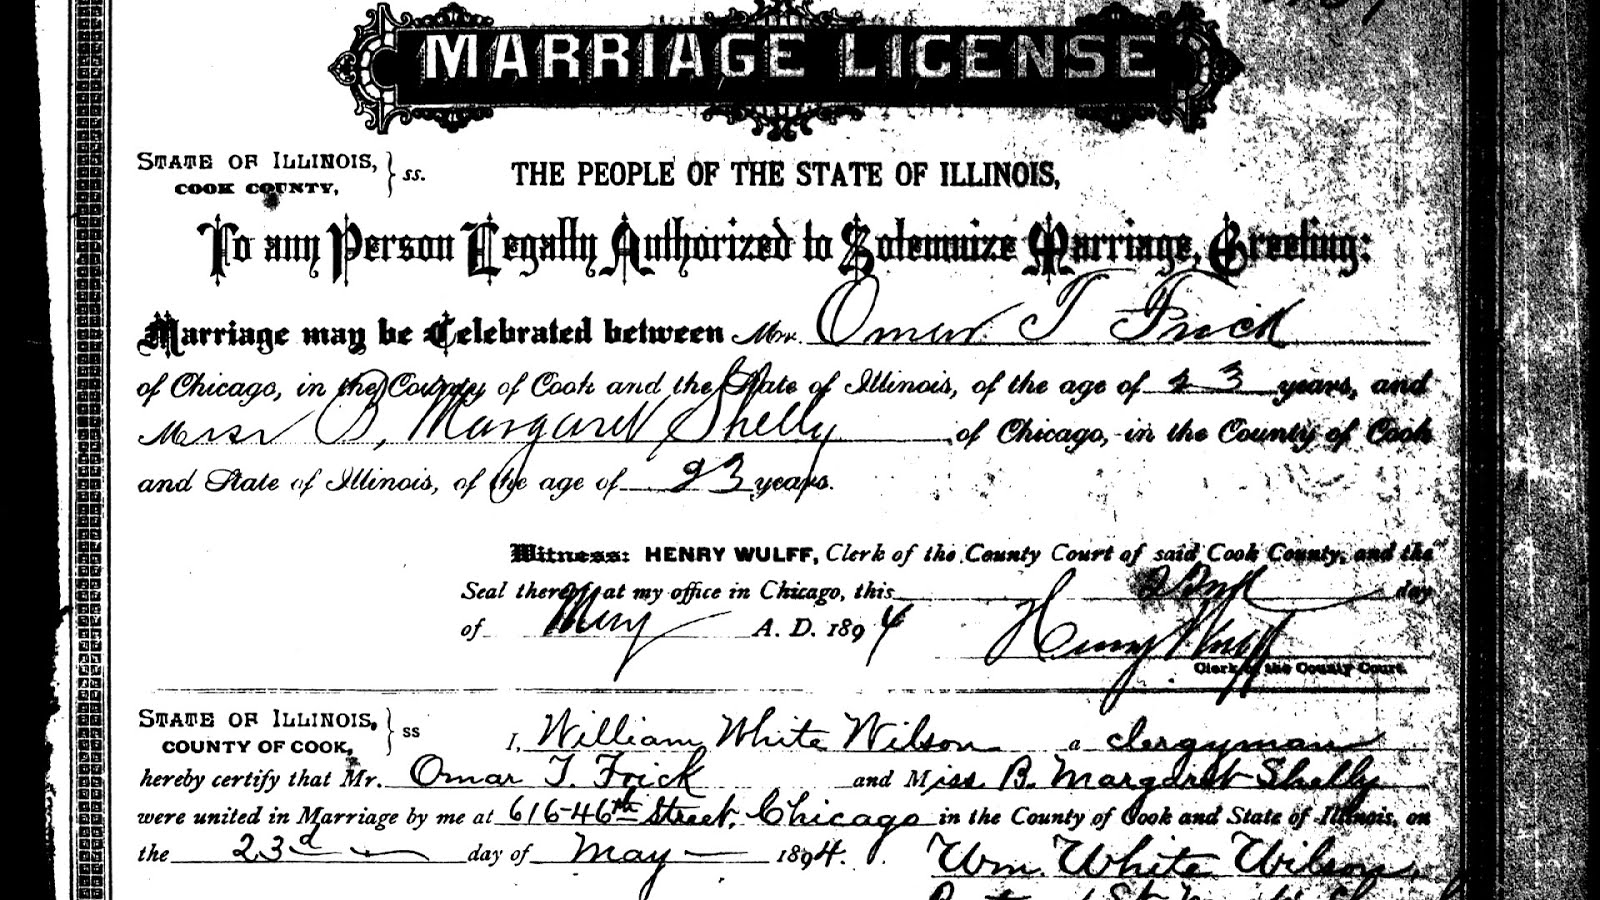 MARRIAGE LICENSE
STATE OF ILLINOIS, } ss.
COOK COUNTY,
THE PEOPLE OF THE STATE OF ILLINOIS,
To any Person Legally Authorized to Solemnize Marriage, Greeting:
Marriage may be Celebrated between Mr. Omar T Frick
of Chicago, in the County of Cook and the State of Illinois, of the age of 23 years, and
Miss B. Margaret Shelly of Chicago, in the County of Cook
and State of Illinois, of the age of 23 years.
Witness: HENRY WULFF, Clerk of the County Court of said Cook County, and the
Seal thereof, at my office in Chicago, this day
of May A. D. 1894
Henry Wulff
Clerk of the County Court.
STATE OF ILLINOIS, } ss
COUNTY OF COOK,
I, William White Wilson a clergyman
hereby certify that Mr. Omar T. Frick and Miss B. Margaret Shelly
were united in Marriage by me at 616-46th Street, Chicago in the County of Cook and State of Illinois, on
the 23d day of May 1894.
Wm. White Wilson,